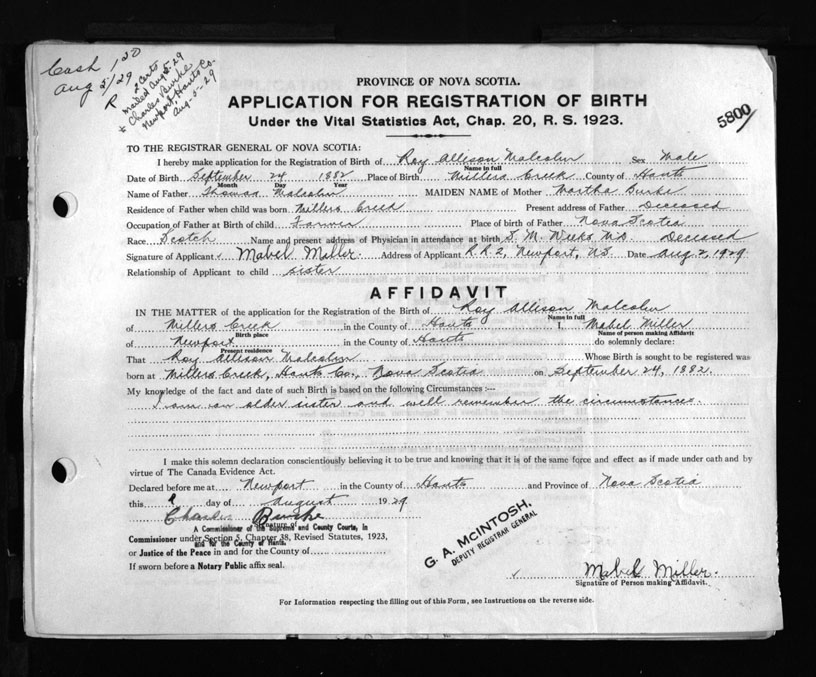 Cash 1.50
Aug 5/29
R
2 Certs
mailed Aug 5-29
Charles Burke
Newport, Hants Co.
Aug-5-29
5800
PROVINCE OF NOVA SCOTIA.
APPLICATION FOR REGISTRATION OF BIRTH
Under the Vital Statistics Act, Chap. 20, R. S. 1923.
TO THE REGISTRAR GENERAL OF NOVA SCOTIA:
I hereby make application for the Registration of Birth of Roy Allison Malcolm Sex Male
Name in full
Date of Birth September 24 1882 Place of Birth Millers Creek County of Hants
Month Day Year
Name of Father Thomas Malcolm MAIDEN NAME of Mother Martha Burke
Residence of Father when child was born Millers Creek Present address of Father Deceased
Occupation of Father at Birth of child Farmer Place of birth of Father Nova Scotia
Race Scotch Name and present address of Physician in attendance at birth T. M. Weeks M.D. Deceased
Signature of Applicant Mabel Miller. Address of Applicant R.R.2, Newport, N.S. Date Aug 2, 1929
Relationship of Applicant to child sister
AFFIDAVIT
IN THE MATTER of the application for the Registration of the Birth of Roy Allison Malcolm
Name in full
of Millers Creek in the County of Hants I, Mabel Miller
Birth place Name of person making Affidavit
of Newport in the County of Hants do solemnly declare:
Present residence
That Roy Allison Malcolm Whose Birth is sought to be registered was
born at Millers Creek, Hants Co., Nova Scotia on September 24, 1882.
My knowledge of the fact and date of such Birth is based on the following Circumstances :—
I am an older sister and well remember the circumstances.
I make this solemn declaration conscientiously believing it to be true and knowing that it is of the same force and effect as if made under oath and by
virtue of The Canada Evidence Act.
Declared before me at Newport in the County of Hants and Province of Nova Scotia
this 2 day of August 1929
Charles Burke
Signature of
A Commissioner of the Supreme and County Courts, in
and for the County of Hants.
Commissioner under Section 5, Chapter 38, Revised Statutes, 1923,
or Justice of the Peace in and for the County of
If sworn before a Notary Public affix seal.
G. A. McINTOSH,
DEPUTY REGISTRAR GENERAL
Mabel Miller.
Signature of Person making Affidavit.
For Information respecting the filling out of this Form, see Instructions on the reverse side.